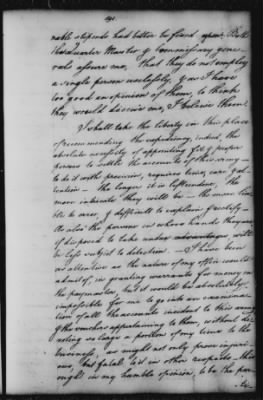 nable stipends had better be fixed upon. Both
the Quarter Master & Commissary gene-
rals assure me, that they do not employ
a single person uselessly, & as I have
too good an opinion of them, to think
they would deceive me, I believe them.
I shall take the liberty in this place
of recommending the expediency, indeed, the
absolute necessity of appointing fit & proper
persons to settle the accounts of this army —
to do it with precision, requires time, care & at-
tention — The longer it is left undone, the
more intricate they will be — the more lia-
ble to error, & difficult to explain & rectify —
As also the persons in whose hands they are
if disposed to take undue advantages will
be less subject to detection — I have been
as attentive as the nature of my office would
admit of, in granting warrants for money on
the paymaster, but it would be absolutely
impossible for me to go into an examina-
tion of all the accounts incident to this army
& the vouchers appertaining to them, without de-
voting so large a portion of my time to the
business, as might not only prove injuri-
ous, but fatal to it in other respects — this
ought in my humble opinion, to be the par-